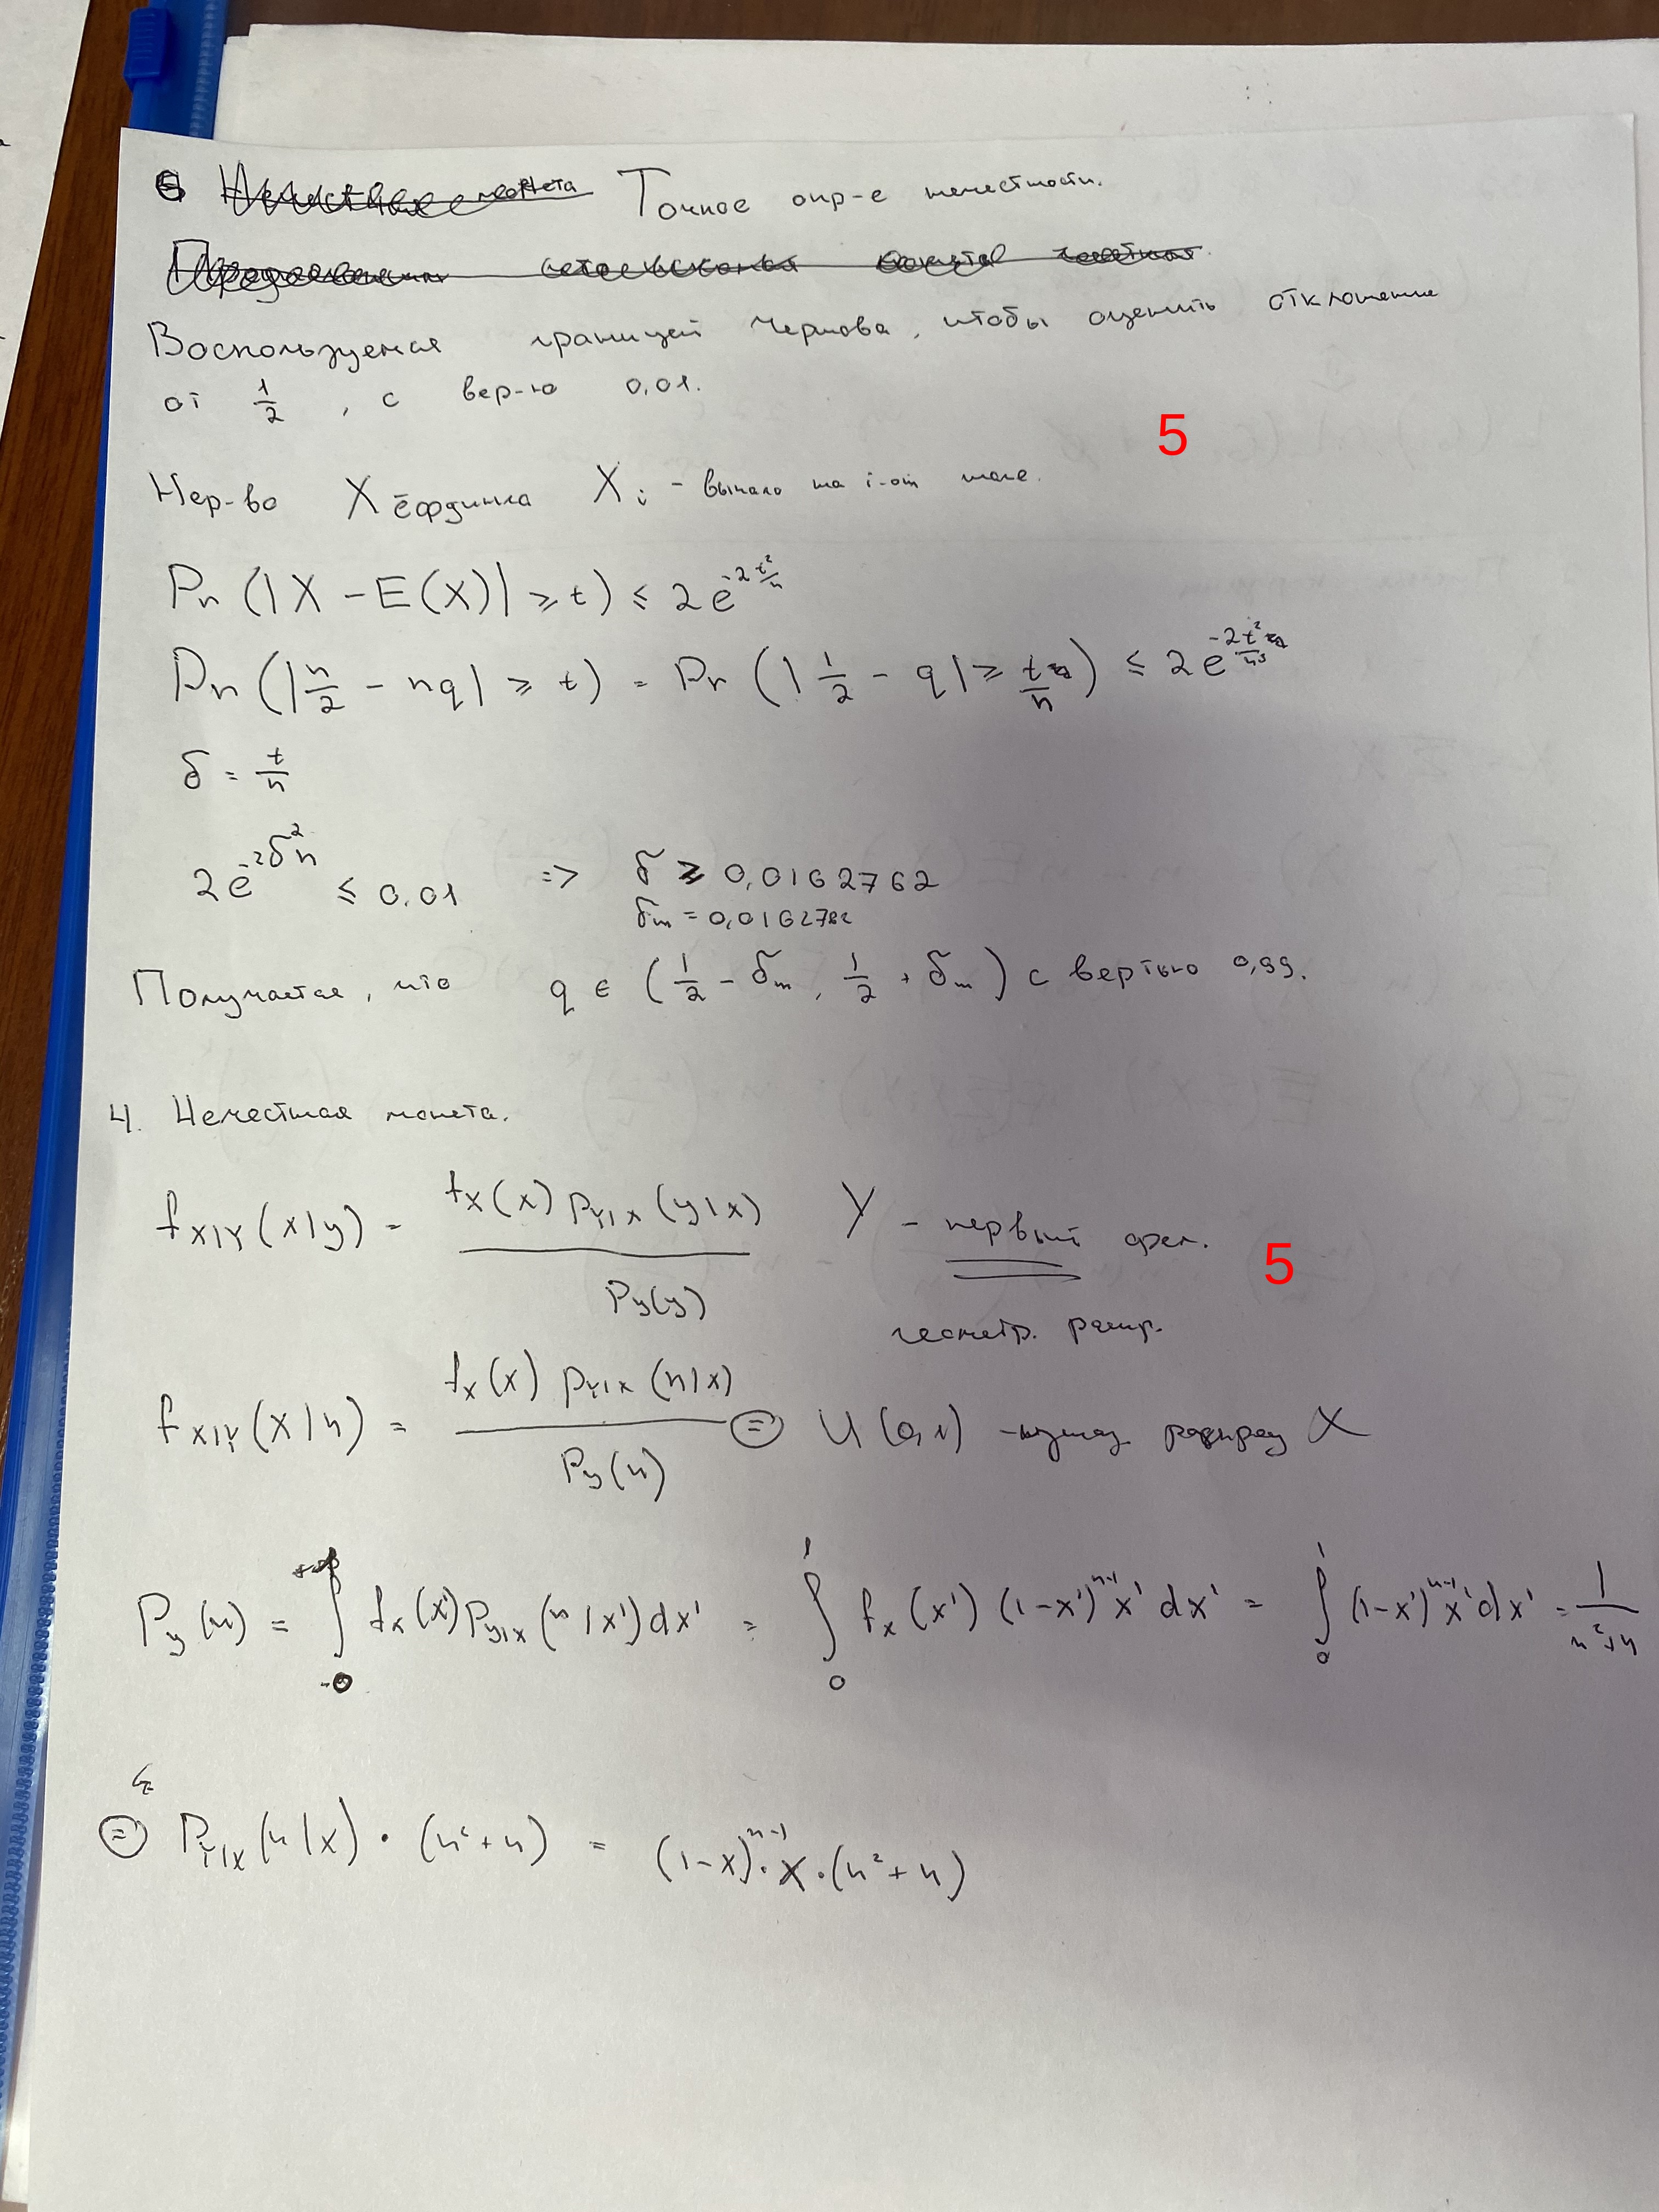 5 Точное опр-е нечестности.
Воспользуемся границей Чернова, чтобы оценить отклонение
от 1/2, с вер-ю 0,01.
5
Нер-во Хёфдинга X_i - выпало на i-ом шаге.
Pr (|X - E(X)| ≥ t) ≤ 2e^{-2t²/n}
Pr (|n/2 - nq| ≥ t) = Pr (|1/2 - q| ≥ t/n) ≤ 2e^{-2t²/n}
δ = t/n
2e^{-2δ²n} ≤ 0,01 => δ ≥ 0,0162762
δ_m = 0,0162762
Получается, что q ∈ (1/2 - δ_m, 1/2 + δ_m) с вер-тью 0,99.
4. Нечестная монета.
f_{X|Y}(x|y) = f_X(x) P_{Y|X}(y|x) / P_y(y) Y - первый орел.
5
геометр. распр.
f_{X|Y}(x|n) = f_X(x) P_{Y|X}(n|x) / P_y(n) ⊜ U(0,1) - распред X
P_y(n) = ∫ f_X(x') P_{Y|X}(n|x') dx' = ∫_0^1 f_X(x') (1-x')^{n-1} x' dx' = ∫_0^1 (1-x')^{n-1} x' dx' = 1/(n²+n)
⊜ P_{Y|X}(n|x) · (n²+n) = (1-x)^{n-1} · x · (n²+n)